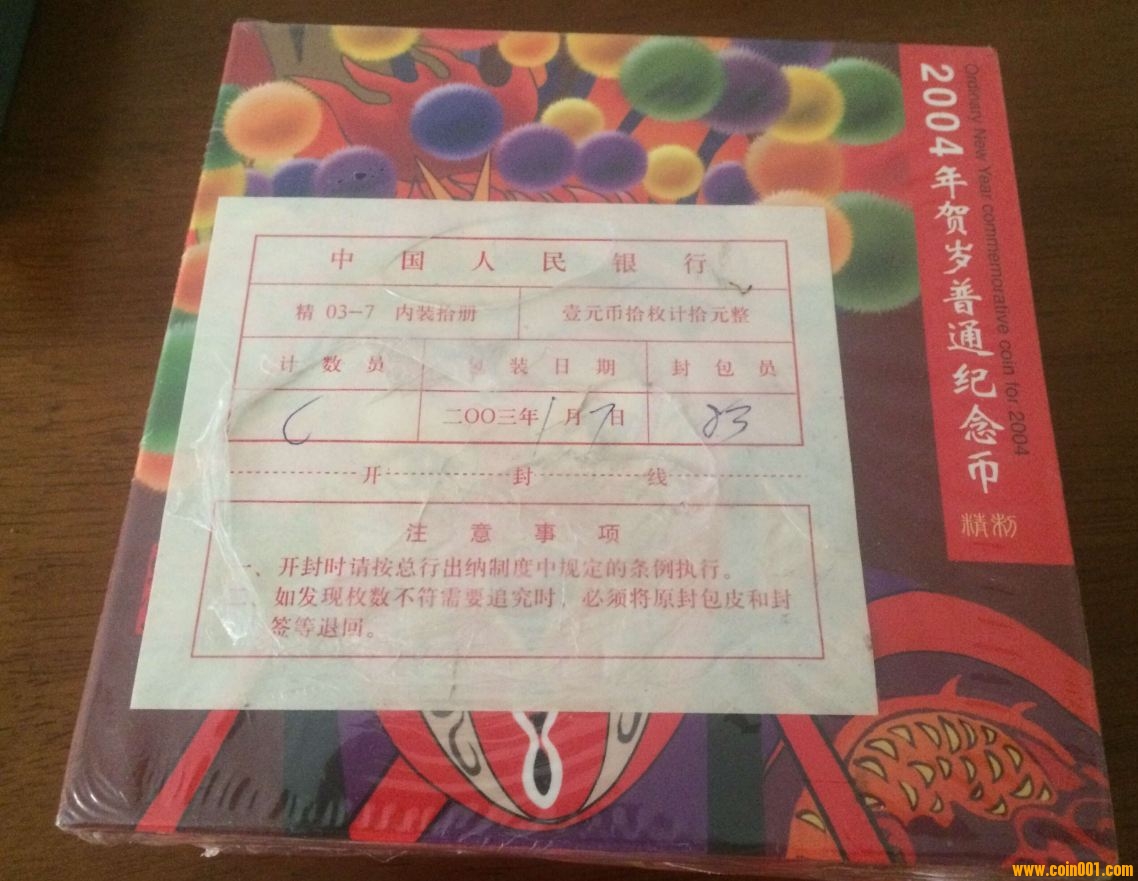 2004年贺岁普通纪念币
Ordinary New Year commemorative coin for 2004
精制
中国人民银行
精 03-7 内装拾册
壹元币拾枚计拾元整
计数员
包装日期
封包员
二〇〇三年1月7日
开 封 线
注意事项
一、开封时请按总行出纳制度中规定的条例执行。
二、如发现枚数不符需要追究时，必须将原封包皮和封
签等退回。
www.coin001.com